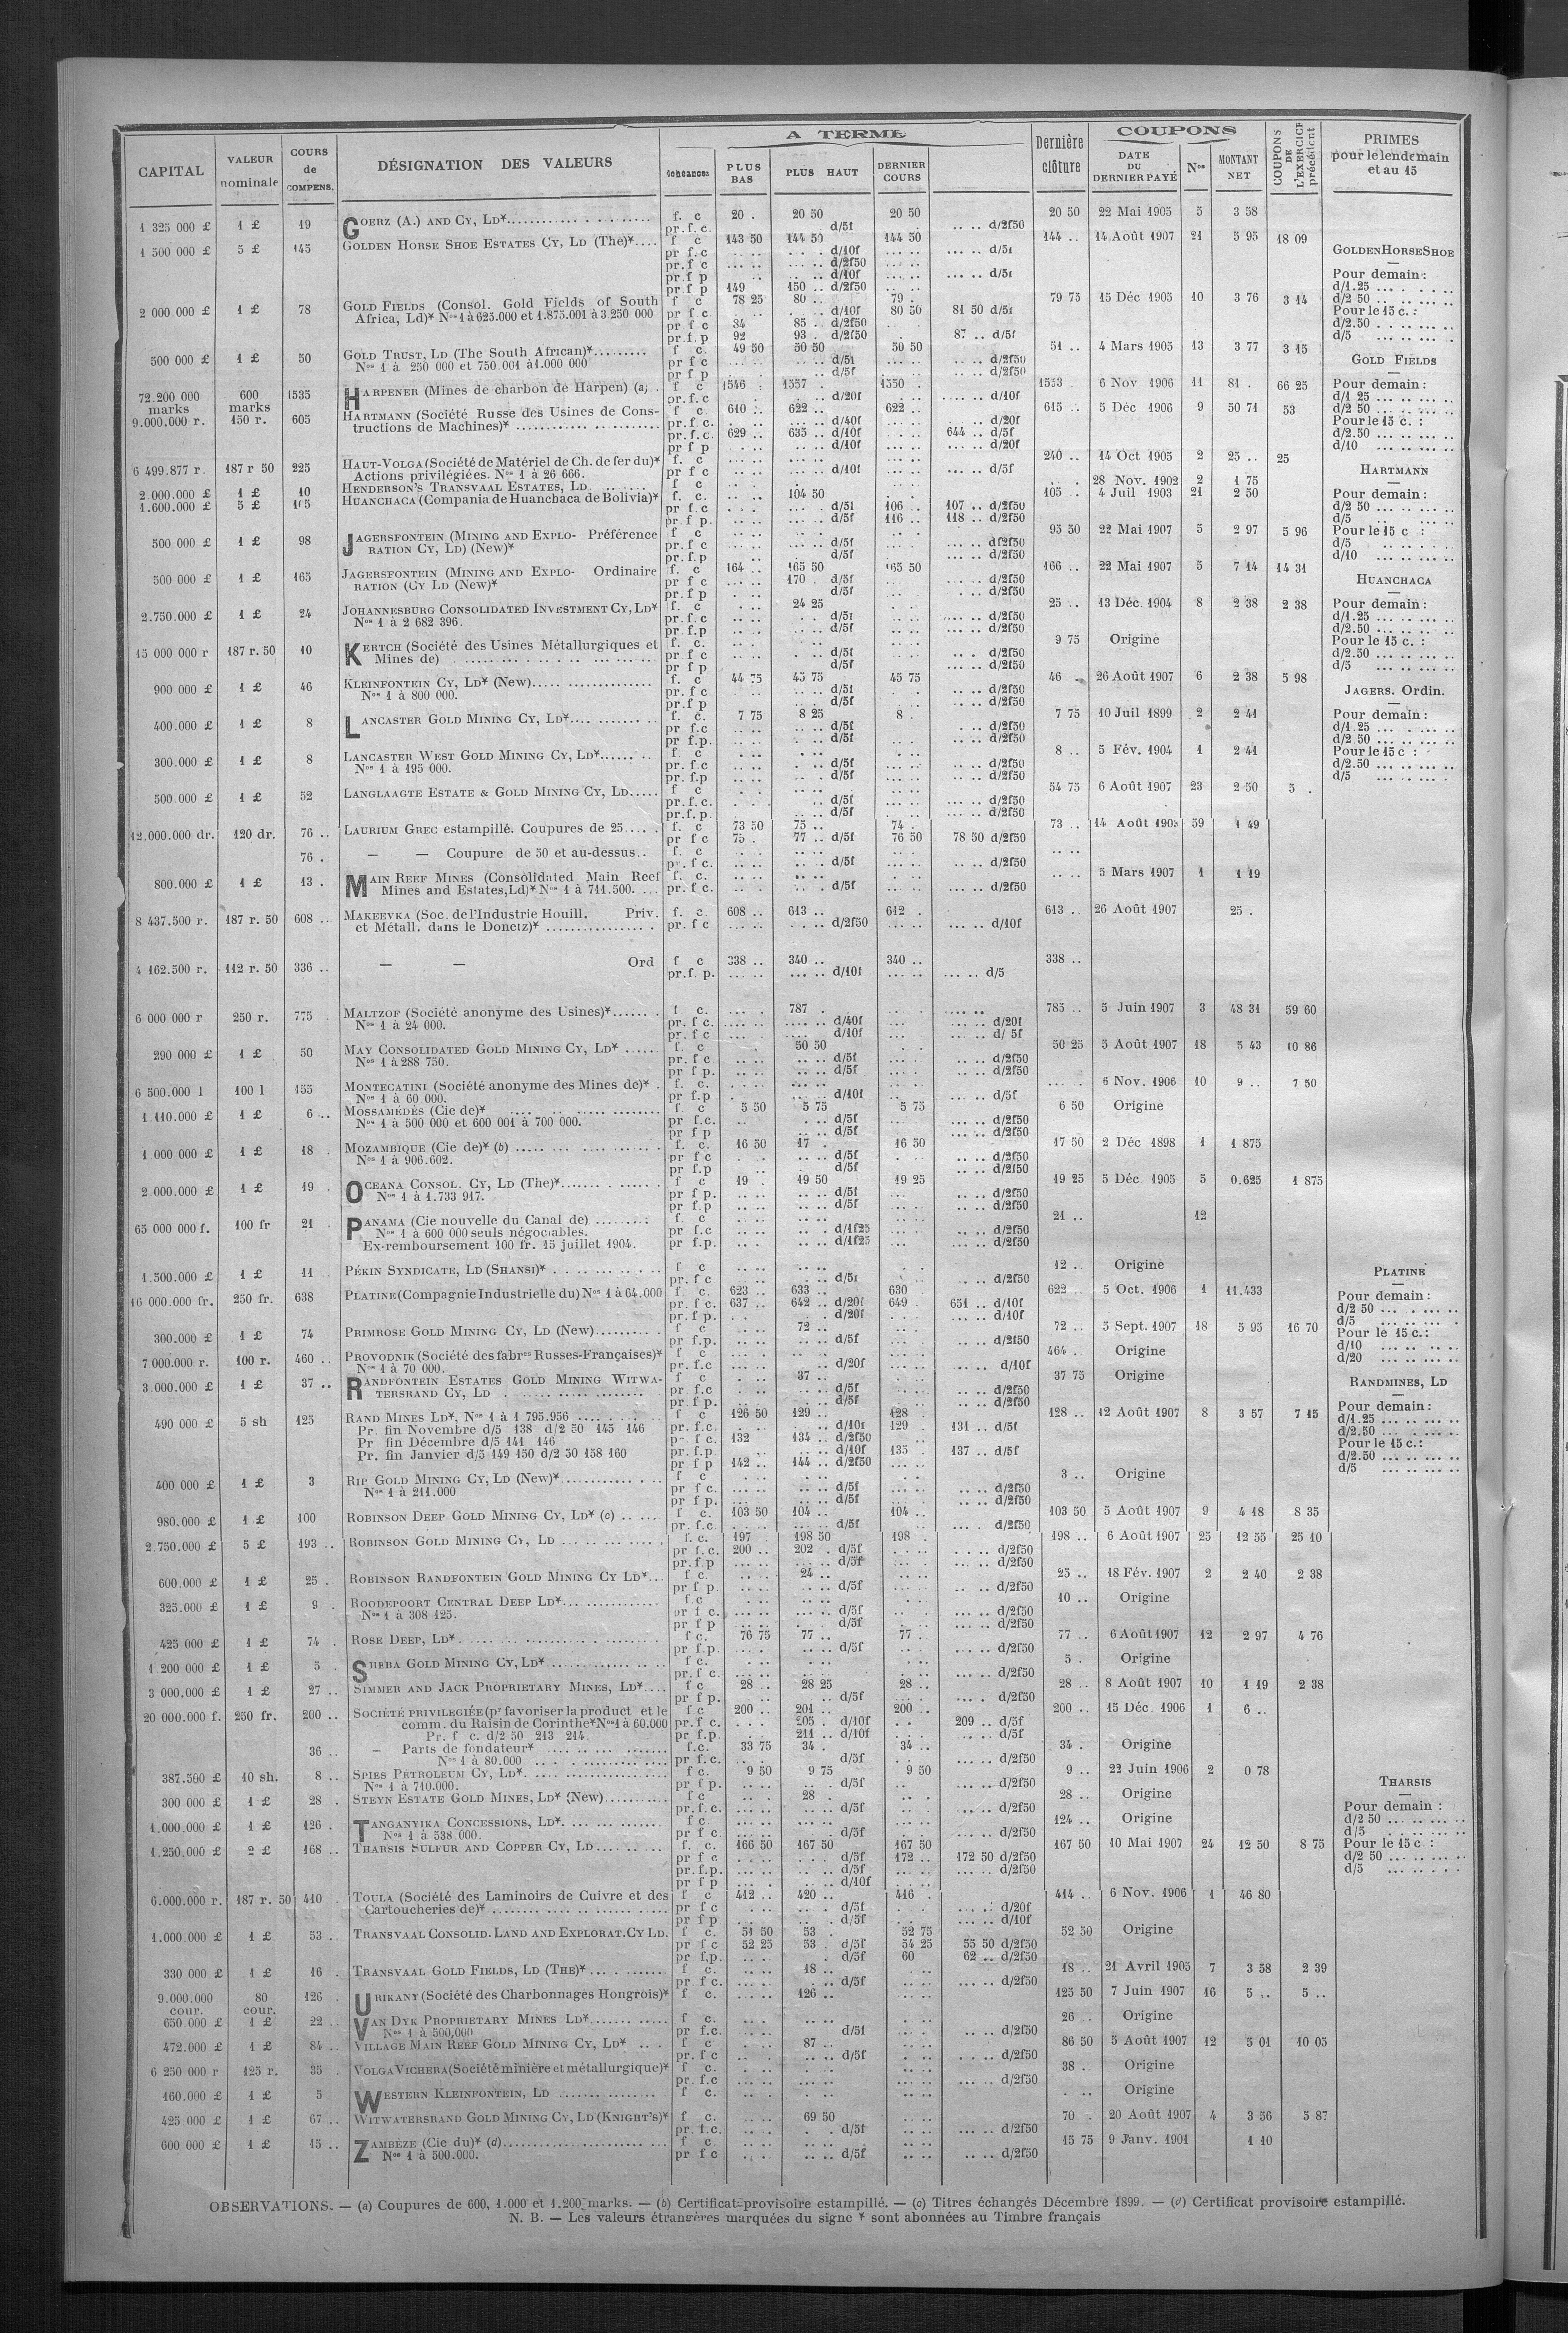 CAPITAL | VALEUR nominale | COURS de COMPENS. | DÉSIGNATION DES VALEURS | A TERME | Dernière clôture | COUPONS | COUPONS DE L'EXERCICE précédent | PRIMES pour le lendemain et au 15
échéances | PLUS BAS | PLUS HAUT | DERNIER COURS | DATE DU DERNIER PAYÉ | Nos | MONTANT NET
1 325 000 £ 1 £ 19 GOERZ (A.) AND CY, LD* f. c 20 . 20 50 20 50 20 50 22 Mai 1905 5 3 58
pr. f. c. d/5f d/2f50
1 500 000 £ 5 £ 145 GOLDEN HORSE SHOE ESTATES CY, LD (The)* f c 143 50 144 50 144 50 144 .. 14 Août 1907 21 5 95 18 09
pr f.c d/10f d/5f
pr. f c d/2f50
pr f p d/10f d/5f
pr. f p 149 150 .. d/2f50
2 000 000 £ 1 £ 78 GOLD FIELDS (Consol. Gold Fields of South f c 78 25 80 .. 79 . 79 75 15 Déc 1905 10 3 76 3 14
Africa, Ld)* Nos 1 à 625.000 et 1.875.001 à 3 250 000 pr f c d/10f 80 50 81 50 d/5f
pr f c 84 85 . d/2f50
pr. f. p 92 93 . d/2f50 87 .. d/5f
500 000 £ 1 £ 50 GOLD TRUST, LD (The South African)* f c. 49 50 50 50 50 50 51 .. 4 Mars 1905 13 3 77 3 15
Nos 1 à 250 000 et 750.001 à 1.000 000 pr f c d/5f d/2f50
pr f p d/5f d/2f50
72.200 000 marks 600 marks 1535 HARPENER (Mines de charbon de Harpen) (a) f c 1546 . 1557 . 1550 . 1553 6 Nov 1906 11 81 . 66 25
pr. f. c d/20f d/10f
9.000.000 r. 150 r. 605 HARTMANN (Société Russe des Usines de Cons- f c 610 .. 622 .. 622 .. 615 .. 5 Déc 1906 9 50 71 53
tructions de Machines)* pr. f. c. d/40f d/20f
pr. f. c. 629 .. 635 .. d/10f 644 .. d/5f
pr f p d/10f d/20f
6 499.877 r. 187 r 50 225 HAUT-VOLGA (Société de Matériel de Ch. de fer du)* f. c 240 .. 14 Oct 1905 2 25 .. 25
Actions privilégiées. Nos 1 à 26 666. pr f c d/10f d/5f
2 000.000 £ 1 £ 10 HENDERSON'S TRANSVAAL ESTATES, LD f c. 28 Nov. 1902 2 1 75
1.600.000 £ 5 £ 105 HUANCHACA (Compania de Huanchaca de Bolivia)* f. c. 104 50 105 .. 4 Juil 1903 21 2 50
pr f.c d/5f 106 .. 107 .. d/2f50
pr. f p. d/5f 116 .. 118 .. d/2f50
500 000 £ 1 £ 98 JAGERSFONTEIN (MINING AND EXPLO- Préférence f c 95 50 22 Mai 1907 5 2 97 5 96
RATION CY, LD) (New)* pr. f c d/5f d/2f50
pr. f. p d/5f d/2f50
500 000 £ 1 £ 165 JAGERSFONTEIN (MINING AND EXPLO- Ordinaire f. c 164 .. 165 50 165 50 166 .. 22 Mai 1907 5 7 14 14 31
RATION (CY LD (New)* pr f c 170 . d/5f d/2f50
pr f p d/5f d/2f50
2.750.000 £ 1 £ 24 JOHANNESBURG CONSOLIDATED INVESTMENT CY, LD* f. c. 24 25 25 .. 13 Déc. 1904 8 2 38 2 38
Nos 1 à 2 682 396. pr. f. c d/5f d/2f50
pr. f. p d/5f d/2f50
15 000 000 r 187 r. 50 10 KERTCH (Société des Usines Métallurgiques et f. c. 9 75 Origine
Mines de) pr f c d/5f d/2f50
pr f p d/5f d/2f50
900 000 £ 1 £ 46 KLEINFONTEIN CY, LD* (New) f. c 44 75 45 75 45 75 46 .. 26 Août 1907 6 2 38 5 98
Nos 1 à 800 000. pr. f c d/5f d/2f50
pr. f p d/5f d/2f50
400.000 £ 1 £ 8 LANCASTER GOLD MINING CY, LD* f. c. 7 75 8 25 8 . 7 75 10 Juil 1899 2 2 41
pr f.c d/5f d/2f50
pr f.p. d/5f d/2f50
300.000 £ 1 £ 8 LANCASTER WEST GOLD MINING CY, LD* f c 8 .. 5 Fév. 1904 1 2 41
Nos 1 à 195 000. pr. f c d/5f d/2f50
pr. f.p d/5f d/2f50
500.000 £ 1 £ 52 LANGLAAGTE ESTATE & GOLD MINING CY, LD f c 54 75 6 Août 1907 23 2 50 5 .
pr. f. c. d/5f d/2f50
pr. f. p. d/5f d/2f50
12.000.000 dr. 120 dr. 76 .. LAURIUM GREC estampillé. Coupures de 25 f. c 73 50 75 .. 74 . 73 .. 14 Août 59 1 49
pr f c 75 . 77 .. d/5f 76 50 78 50 d/2f50
76 . — — Coupure de 50 et au-dessus f. c
pr. f c. d/5f d/2f50
800.000 £ 1 £ 13 . MAIN REEF MINES (Consolidated Main Reef f. c. 5 Mars 1907 1 1 19
Mines and Estates, Ld)* Nos 1 à 711.500 pr. f c. d/5f d/2f50
8 437.500 r. 187 r. 50 608 .. MAKEEVKA (Soc. de l'Industrie Houill. Priv. f. c. 608 .. 613 .. 612 . 613 .. 26 Août 1907 25 .
et Métall. dans le Donetz)* pr. f c d/2f50 d/10f
4 162.500 r. 112 r. 50 336 .. — — Ord f c 338 .. 340 .. 340 .. 338 ..
pr. f. p. d/10f d/5
6 000 000 r 250 r. 775 . MALTZOF (Société anonyme des Usines)* f c. 787 . 785 .. 5 Juin 1907 3 48 31 59 60
Nos 1 à 24 000. pr. f c. d/40f d/20f
pr. f c d/10f d/ 5f
290 000 £ 1 £ 50 MAY CONSOLIDATED GOLD MINING CY, LD* f. c 50 50 50 25 5 Août 1907 18 5 43 10 86
Nos 1 à 288 750. pr f c d/5f d/2f50
pr f p. d/5f d/2f50
6 500.000 l 100 l 155 MONTECATINI (Société anonyme des Mines de)* f. c. 6 Nov. 1906 10 9 .. 7 50
Nos 1 à 60 000. pr f.p d/10f d/5f
1 110.000 £ 1 £ 6 .. MOSSAMÉDÈS (Cie de)* f. c 5 50 5 75 5 75 6 50 Origine
Nos 1 à 500 000 et 600 001 à 700 000. pr f.c. d/5f d/2f50
pr f p d/5f d/2f50
1 000 000 £ 1 £ 18 . MOZAMBIQUE (Cie de)* (b) f. c. 16 50 17 . 16 50 17 50 2 Déc 1898 1 1 875
Nos 1 à 906.602. pr f c d/5f d/2f50
pr f.p d/5f d/2f50
2.000.000 £ 1 £ 19 . OCEANA CONSOL. CY, LD (The)* f c 19 . 19 50 19 25 19 25 5 Déc 1905 5 0.625 1 875
Nos 1 à 1.733 917. pr f p. d/5f d/2f50
pr f p d/5f d/2f50
65 000 000 f. 100 fr 21 . PANAMA (Cie nouvelle du Canal de) f. c 21 .. 12
Nos 1 à 600 000 seuls négociables. pr f.c d/1f25 d/2f50
Ex-remboursement 100 fr. 15 juillet 1904. pr f.p. d/1f25 d/2f50
1.500.000 £ 1 £ 11 PÉKIN SYNDICATE, LD (SHANSI)* f c 12 .. Origine
pr. f c d/5f d/2f50
16 000.000 fr. 250 fr. 638 PLATINE (Compagnie Industrielle du) Nos 1 à 64.000 f. c. 623 .. 633 .. 630 . 622 .. 5 Oct. 1906 1 11.433
pr. f c. 637 .. 642 .. d/20f 649 . 651 .. d/10f
pr. f p. d/20f d/10f
300.000 £ 1 £ 74 PRIMROSE GOLD MINING CY, LD (New) f c 72 .. 72 .. 5 Sept. 1907 18 5 95 16 70
pr f.p. d/5f d/2f50
7 000.000 r. 100 r. 460 .. PROVODNIK (Société des fabres Russes-Françaises)* f c 464 .. Origine
Nos 1 à 70 000. pr. f.c d/20f d/10f
3.000.000 £ 1 £ 37 .. RANDFONTEIN ESTATES GOLD MINING WITWA- f c 37 .. 37 75 Origine
TERSRAND CY, LD pr f.c d/5f d/2f50
pr f p. d/5f d/2f50
490 000 £ 5 sh 125 RAND MINES LD*, Nos 1 à 1 795.956 f c 126 50 129 .. 128 . 128 .. 12 Août 1907 8 3 57 7 15
Pr. fin Novembre d/5 138 d/2 50 145 146 pr. f.c. d/10f 129 . 131 .. d/5f
Pr fin Décembre d/5 141 146 pr. f c. 132 134 .. d/2f50
Pr. fin Janvier d/5 149 150 d/2 50 158 160 pr. f.p d/10f 135 . 137 .. d/5f
pr f p 142 .. 144 .. d/2f50
400 000 £ 1 £ 3 RIP GOLD MINING CY, LD (New)* f c 3 .. Origine
Nos 1 à 211.000 pr f c. d/5f d/2f50
pr f p. d/5f d/2f50
980.000 £ 1 £ 100 ROBINSON DEEP GOLD MINING CY, LD* (c) f c. 103 50 104 .. 104 .. 103 50 5 Août 1907 9 4 18 8 35
pr. f.c. d/5f d/2f50
2.750.000 £ 5 £ 193 .. ROBINSON GOLD MINING CY, LD f. c. 197 . 198 50 198 . 198 .. 6 Août 1907 25 12 55 25 10
pr f.c. 200 .. 202 . d/5f d/2f50
pr. f.p d/5f d/2f50
600.000 £ 1 £ 25 . ROBINSON RANDFONTEIN GOLD MINING CY LD* f c. 24 .. 25 .. 18 Fév. 1907 2 2 40 2 38
pr f p d/5f d/2f50
325.000 £ 1 £ 9 . ROODEPOORT CENTRAL DEEP LD* f.c 10 .. Origine
Nos 1 à 308 125. pr f c. d/5f d/2f50
pr f p d/5f d/2f50
425 000 £ 1 £ 74 . ROSE DEEP, LD* f c. 76 75 77 .. 77 . 77 .. 6 Août 1907 12 2 97 4 76
pr. f.p. d/5f d/2f50
1.200 000 £ 1 £ 5 . SHEBA GOLD MINING CY, LD* f c. 5 . Origine
pr. f c. d/2f50
3 000.000 £ 1 £ 27 .. SIMMER AND JACK PROPRIETARY MINES, LD* f c 28 .. 28 25 28 .. 28 .. 8 Août 1907 10 1 19 2 38
pr f p. d/5f d/2f50
20 000.000 f. 250 fr. 200 .. SOCIÉTÉ PRIVILEGIÉE (pr favoriser la product et le f c 200 .. 201 .. 200 .. 200 .. 15 Déc. 1906 1 6 ..
comm. du Raisin de Corinthe* Nos 1 à 60.000 pr. f c. 205 . d/10f 209 .. d/5f
Pr. f c. d/2 50 213 214. pr f.p. 211 .. d/10f d/5f
36 .. — Parts de fondateur* f.c. 33 75 34 . 34 .. 34 . Origine
Nos 1 à 80.000 pr f.c. d/5f d/2f50
387.500 £ 10 sh. 8 .. SPIES PETROLEUM CY, LD* f c. 9 50 9 75 9 50 9 .. 22 Juin 1906 2 0 78
Nos 1 à 710.000. pr f p. d/5f d/2f50
300 000 £ 1 £ 28 . STEYN ESTATE GOLD MINES, LD* (New) f c 28 . 28 .. Origine
pr. f.c. d/5f d/2f50
1.000.000 £ 1 £ 126 . TANGANYIKA CONCESSIONS, LD* f c 124 .. Origine
Nos 1 à 538 000. pr f c. d/5f d/2f50
1.250.000 £ 2 £ 168 .. THARSIS SULFUR AND COPPER CY, LD f. c. 166 50 167 50 167 50 167 50 10 Mai 1907 24 12 50 8 75
pr f c d/5f 172 .. 172 50 d/2f50
pr. f.p. d/5f d/2f50
pr f p d/10f
6.000.000 r. 187 r. 50 410 TOULA (Société des Laminoirs de Cuivre et des f c 412 .. 420 .. 416 . 414 .. 6 Nov. 1906 1 46 80
Cartoucheries de)* pr f c d/5f d/20f
pr f p d/5f d/10f
1.000.000 £ 1 £ 53 . TRANSVAAL CONSOLID. LAND AND EXPLORAT. CY LD. f c. 51 50 53 . 52 75 52 50 Origine
pr f c 52 25 53 . d/5f 54 25 55 50 d/2f50
pr f.p. d/5f 60 62 .. d/2f50
330 000 £ 1 £ 16 . TRANSVAAL GOLD FIELDS, LD (THE)* f c. 18 .. 18 .. 21 Avril 1905 7 3 58 2 39
pr. f c. d/5f d/2f50
9.000.000 cour. 80 cour. 126 . URIKANY (Société des Charbonnages Hongrois)* f c. 126 .. 125 50 7 Juin 1907 16 5 .. 5 ..
650.000 £ 1 £ 22 .. VAN DYK PROPRIETARY MINES LD* f c. 26 .. Origine
Nos 1 à 500,000 pr f.c. d/5f d/2f50
472.000 £ 1 £ 84 .. VILLAGE MAIN REEF GOLD MINING CY, LD* f c 87 .. 86 50 5 Août 1907 12 5 01 10 03
pr. f c d/5f d/2f50
6 250 000 r 125 r. 35 . VOLGA VICHERA (Société minière et métallurgique)* f c. 38 . Origine
pr. f.c d/2f50
160.000 £ 1 £ 5 WESTERN KLEINFONTEIN, LD f c. Origine
425 000 £ 1 £ 67 .. WITWATERSRAND GOLD MINING CY, LD (KNIGHT'S)* f c. 69 50 70 . 20 Août 1907 4 3 56 5 87
pr. f.c. d/5f d/2f50
600 000 £ 1 £ 15 .. ZAMBÈZE (Cie du)* (d) f c 15 75 9 Janv. 1901 1 10
Nos 1 à 500.000. pr f c d/5f d/2f50
GOLDEN HORSE SHOE
Pour demain:
d/1.25
d/2 50
Pour le 15 c.:
d/2.50
d/5
GOLD FIELDS
Pour demain:
d/1 25
d/2 50
Pour le 15 c. :
d/2.50
d/10
HARTMANN
Pour demain:
d/2 50
d/5
Pour le 15 c :
d/5
d/10
HUANCHACA
Pour demain:
d/1.25
d/2.50
Pour le 15 c. :
d/2.50
d/5
JAGERS. Ordin.
Pour demain:
d/1.25
d/2.50
Pour le 15 c :
d/2.50
d/5
PLATINE
Pour demain:
d/2 50
d/5
Pour le 15 c.:
d/10
d/20
RANDMINES, LD
Pour demain:
d/1.25
d/2.50
Pour le 15 c.:
d/2.50
d/5
THARSIS
Pour demain :
d/2 50
d/5
Pour le 15 c. :
d/2 50
d/5
OBSERVATIONS. — (a) Coupures de 600, 1.000 et 1.200 marks. — (b) Certificat provisoire estampillé. — (c) Titres échangés Décembre 1899. — (d) Certificat provisoire estampillé.
N. B. — Les valeurs étrangères marquées du signe * sont abonnées au Timbre français